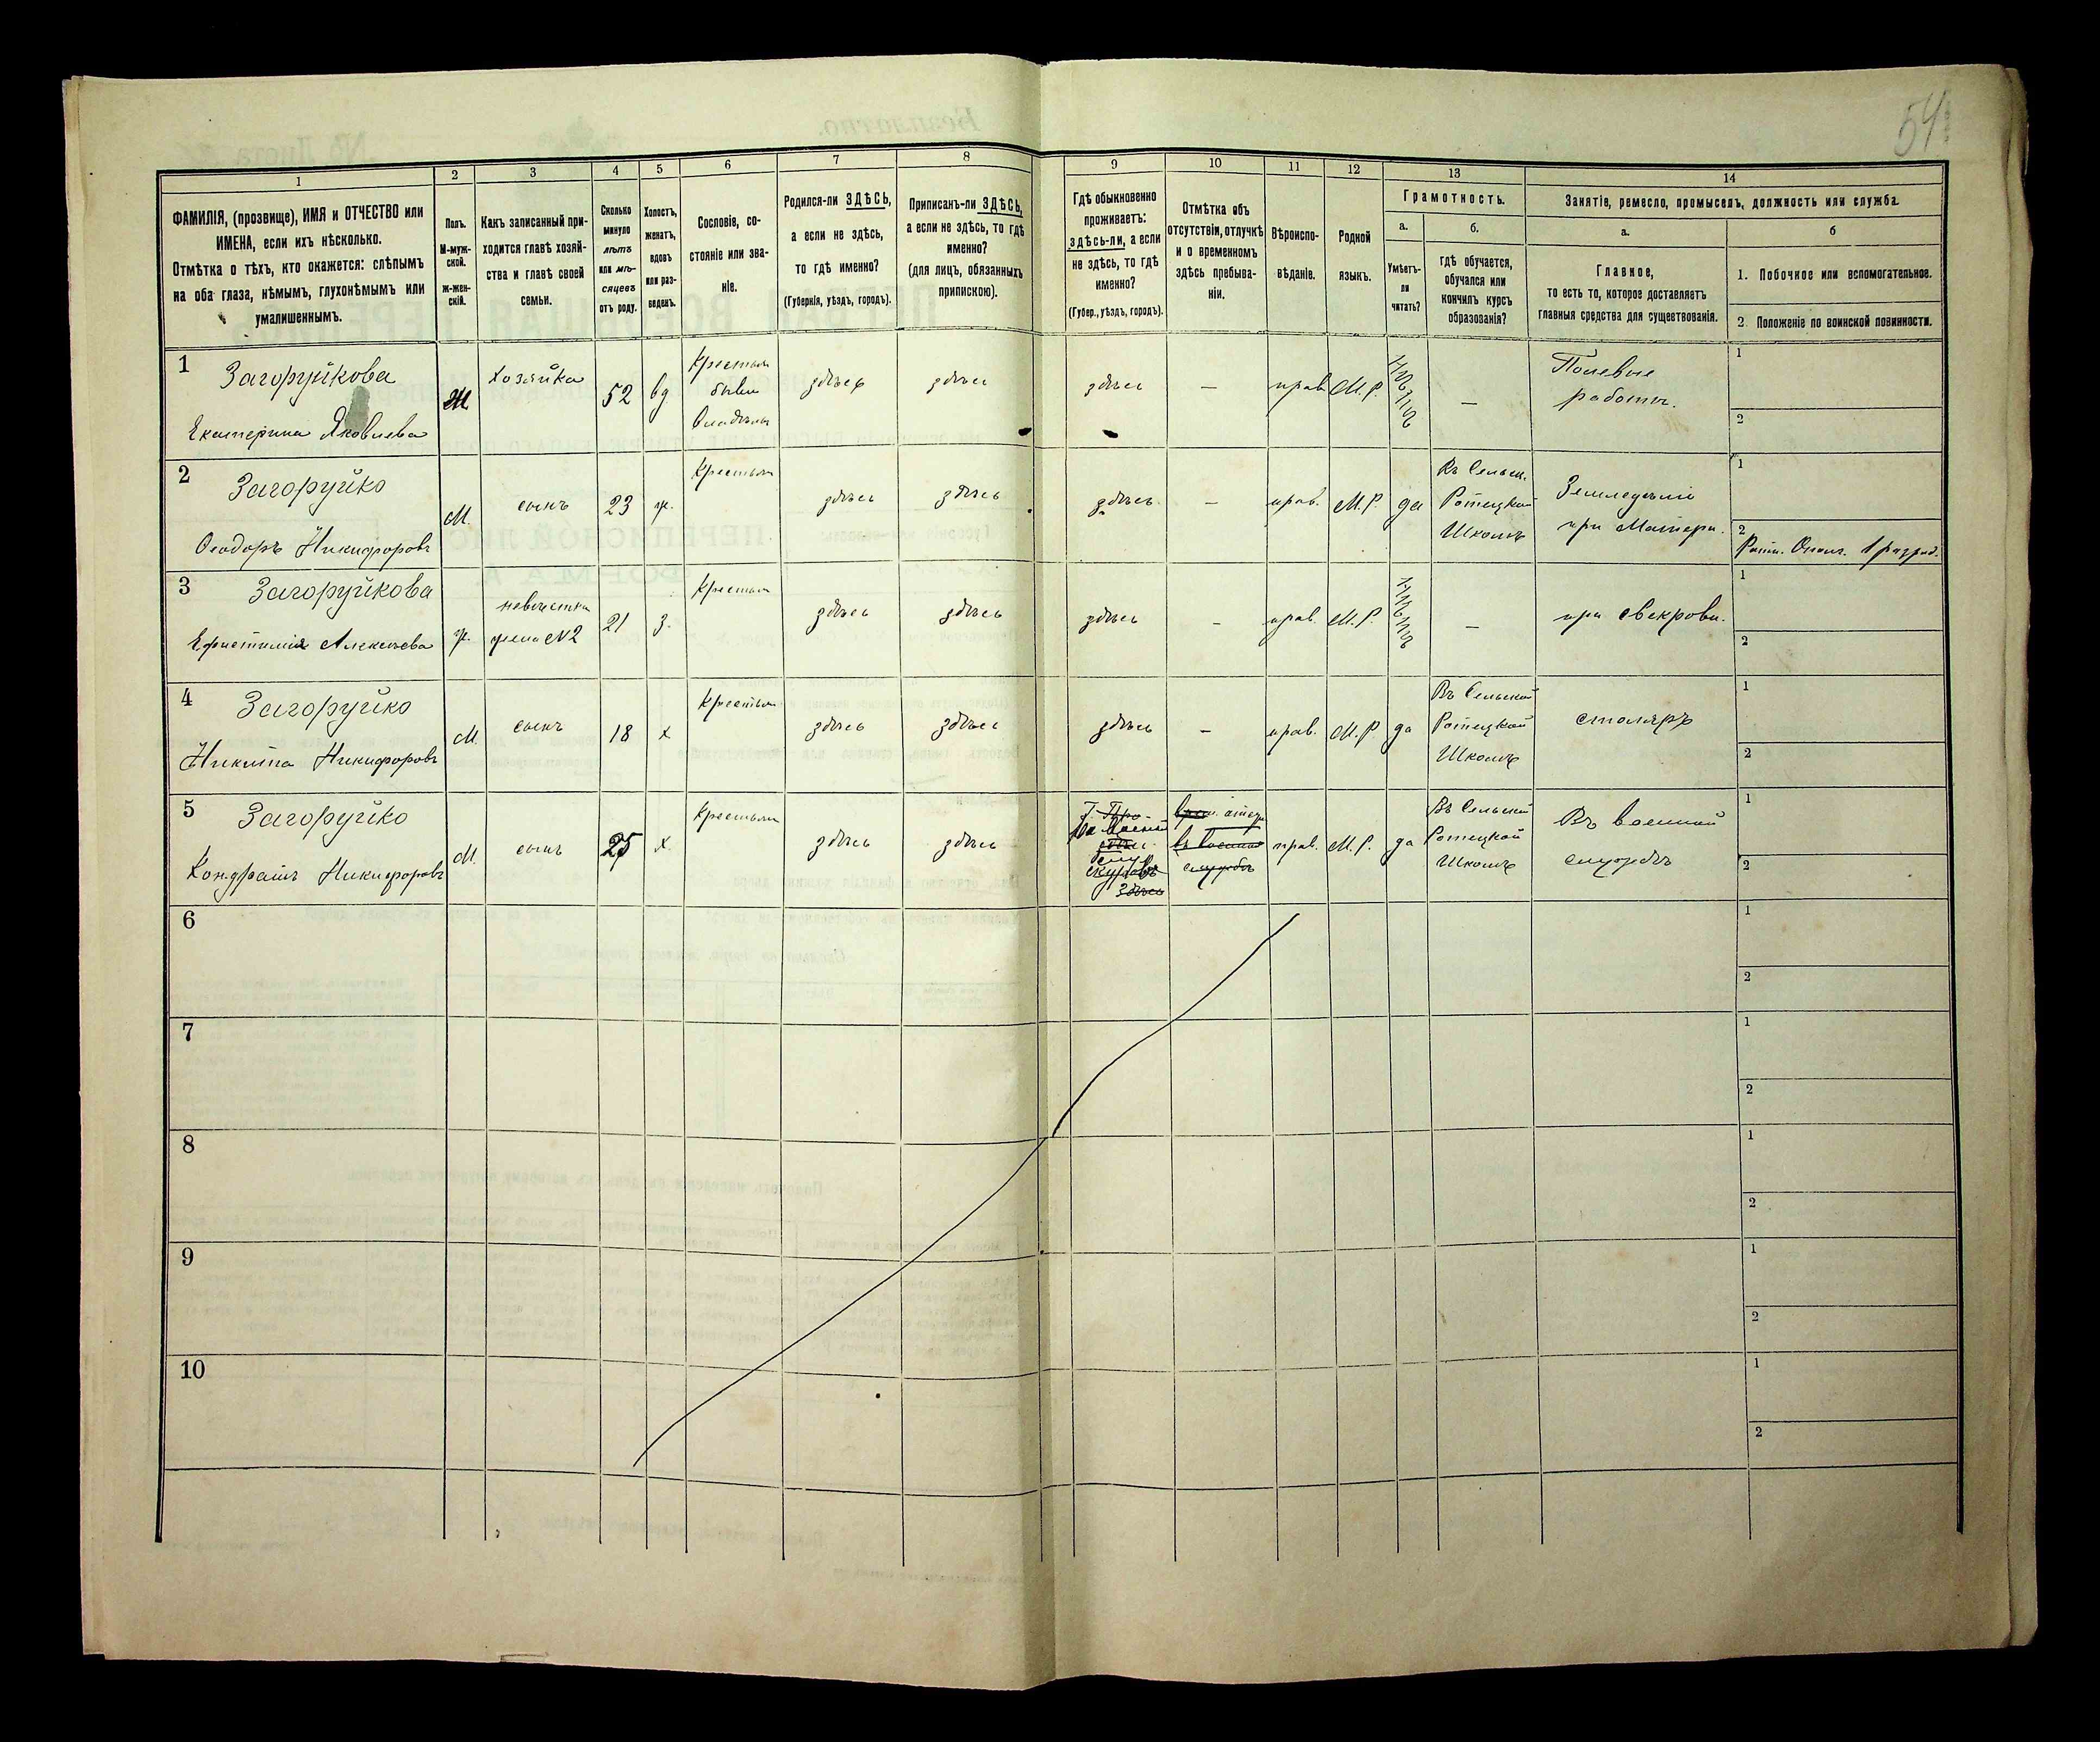 54
1
2
3
4
5
6
7
8
9
10
11
12
13
14
ФАМИЛІЯ, (прозвище), ИМЯ и ОТЧЕСТВО или
ИМЕНА, если ихъ нѣсколько.
Отмѣтка о тѣхъ, кто окажется: слѣпымъ
на оба глаза, нѣмымъ, глухонѣмымъ или
умалишеннымъ.
Полъ.
М-муж-
ской.
Ж-жен-
скій.
Какъ записанный при-
ходится главѣ хозяй-
ства и главѣ своей
семьи.
Сколько
минуло
лѣтъ
или мѣ-
сяцевъ
отъ роду.
Холостъ,
женатъ,
вдовъ
или раз-
веденъ.
Сословіе, со-
стояніе или зва-
ніе.
Родился-ли ЗДѢСЬ,
а если не здѣсь,
то гдѣ именно?
(Губернія, уѣздъ, городъ).
Приписанъ-ли ЗДѢСЬ,
а если не здѣсь, то гдѣ
именно?
(для лицъ, обязанныхъ
припискою).
Гдѣ обыкновенно
проживаетъ:
здѣсь-ли, а если
не здѣсь, то гдѣ
именно?
(Губер., уѣздъ, городъ).
Отмѣтка объ
отсутствіи, отлучкѣ
и о временномъ
здѣсь пребыва-
ніи.
Вѣроиспо-
вѣданіе.
Родной
языкъ.
Грамотность.
а.
Умѣетъ-
ли
читать?
б.
гдѣ обучается,
обучался или
кончилъ курсъ
образованія?
Занятіе, ремесло, промыселъ, должность или служба.
а.
Главное,
то есть то, которое доставляетъ
главныя средства для существованія.
б
1. Побочное или вспомогательное.
2 Положеніе по воинской повинности.
1
Загоруйкова
Екатерина Яковлева
Ж
Хозяйка
52
вд
Крестьян
бывш
здѣсь
здѣсь
здѣсь
—
прав.
М.Р.
нѣтъ
—
Полевые
работы.
1
2
2
Загоруйко
Ѳеодоръ Никифоровъ
М.
сынъ
23
ж.
Крестьян
здѣсь
здѣсь
здѣсь
—
прав.
М.Р.
да
Въ Сельск.
Школѣ
Земледѣліе
при Матери.
1
2
1 разряд.
3
Загоруйкова
Алексѣева
ж.
невѣстка
жена №2
21
з.
Крестьян
здѣсь
здѣсь
здѣсь
—
прав.
М.Р.
нѣтъ
—
при свекрови.
1
2
4
Загоруйко
Никита Никифоровъ
М.
сынъ
18
х
Крестьян
здѣсь
здѣсь
здѣсь
—
прав.
М.Р.
да
Въ Сельской
Школѣ
столяръ
1
2
5
Загоруйко
Кондратъ Никифоровъ
М.
сынъ
25
х.
Крестьян
здѣсь
здѣсь
здѣсь
въ военной
службѣ
прав.
М.Р.
да
Въ Сельской
Школѣ
Въ военной
службѣ
1
2
6
1
2
7
1
2
8
1
2
9
1
2
10
1
2